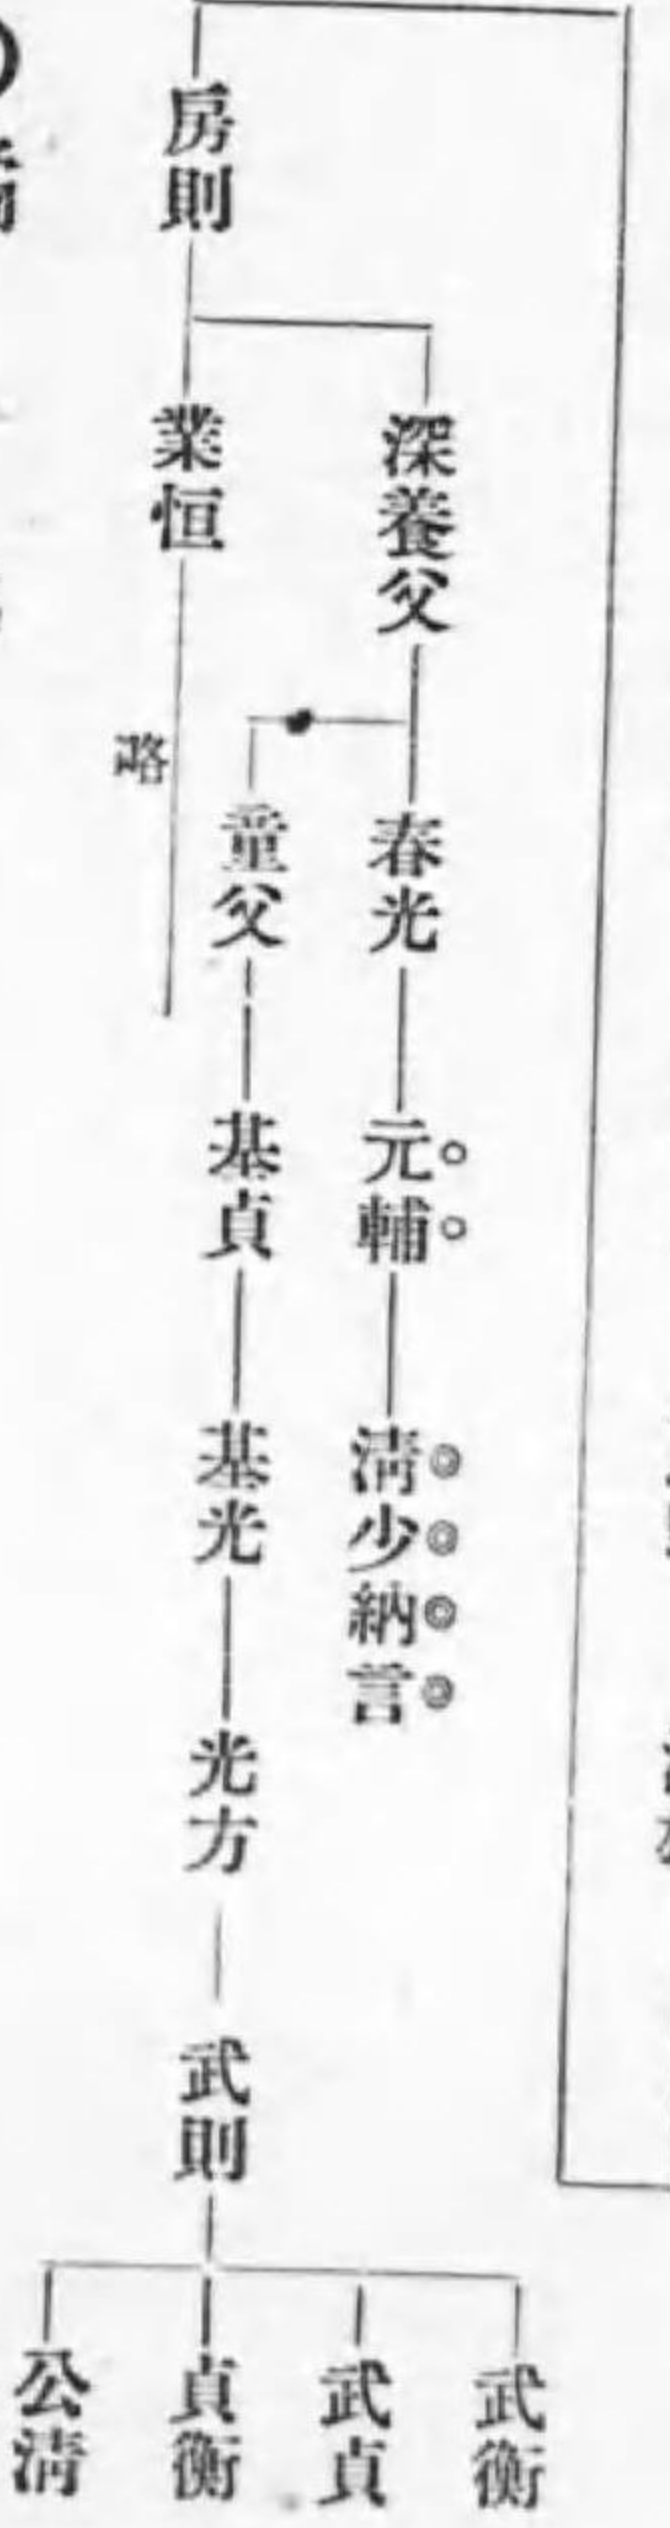 房則
深養父
春光
元輔
淸少納言
童父
基貞
基光
光方
武則
武衡
武貞
貞衡
公淸
業恒
略